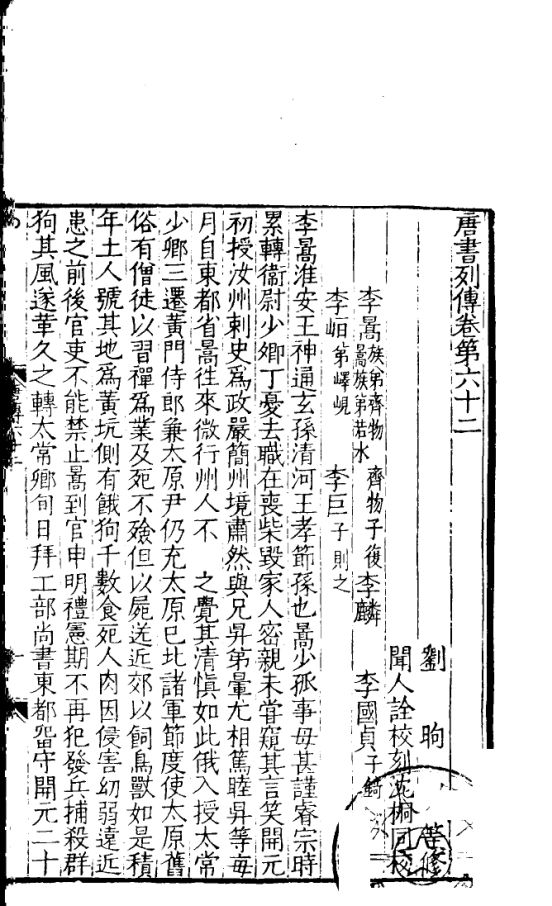 唐書列傳卷第六十二
劉昫 等修
聞人詮校刻 沈桐同校
李暠 族弟齊物 齊物子復 李麟 李國貞 子錡
暠族弟若水
李峘 弟嶧峴 李巨 子則之
李暠淮安王神通玄孫清河王孝節孫也暠少孤事母甚謹睿宗時
累轉衞尉少卿丁憂去職在喪柴毀家人密親未甞窺其言笑開元
初授汝州刺史爲政嚴簡州境肅然與兄昇弟暈尤相篤睦昇等每
月自東都省暠徃來微行州人不 之覺其清慎如此俄入授太常
少卿三遷黃門侍郎兼太原尹仍充太原已北諸軍節度使太原舊
俗有僧徒以習禪爲業及死不殮但以屍送近郊以飼鳥獸如是積
年土人號其地爲黃坑側有餓狗千數食死人肉因侵害幼弱遠近
患之前後官吏不能禁止暠到官申明禮憲期不再犯發兵捕殺群
狗其風遂革久之轉太常卿旬日拜工部尚書東都畱守開元二十